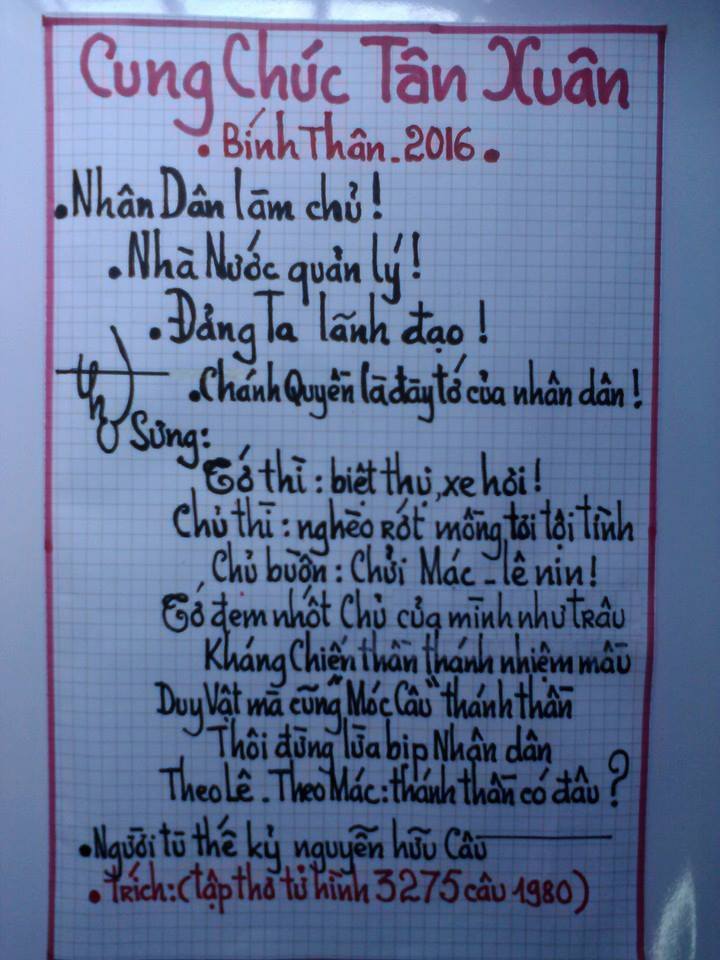 Cung Chúc Tân Xuân
• Bính Thân - 2016 •
• Nhân Dân làm chủ!
• Nhà Nước quản lý!
• Đảng Ta lãnh đạo!
• Chánh Quyền là đầy tớ của nhân dân!
Thơ Sừng:
Tớ thì: biệt thự, xe hơi!
Chủ thì: nghèo rớt mồng tơi tội tình
Chủ buồn: Chửi Mác - lê nin!
Tớ đem nhốt Chủ của mình như trâu
Kháng Chiến thần thánh nhiệm mầu
Duy Vật mà cũng "Móc Câu" thánh thần
Thôi đừng lừa bịp Nhân dân
Theo Lê - Theo Mác: thánh thần có đâu?
• Người tù thế kỷ nguyễn hữu Cầu
• Trích: (tập thơ tử hình 3275 câu 1980)